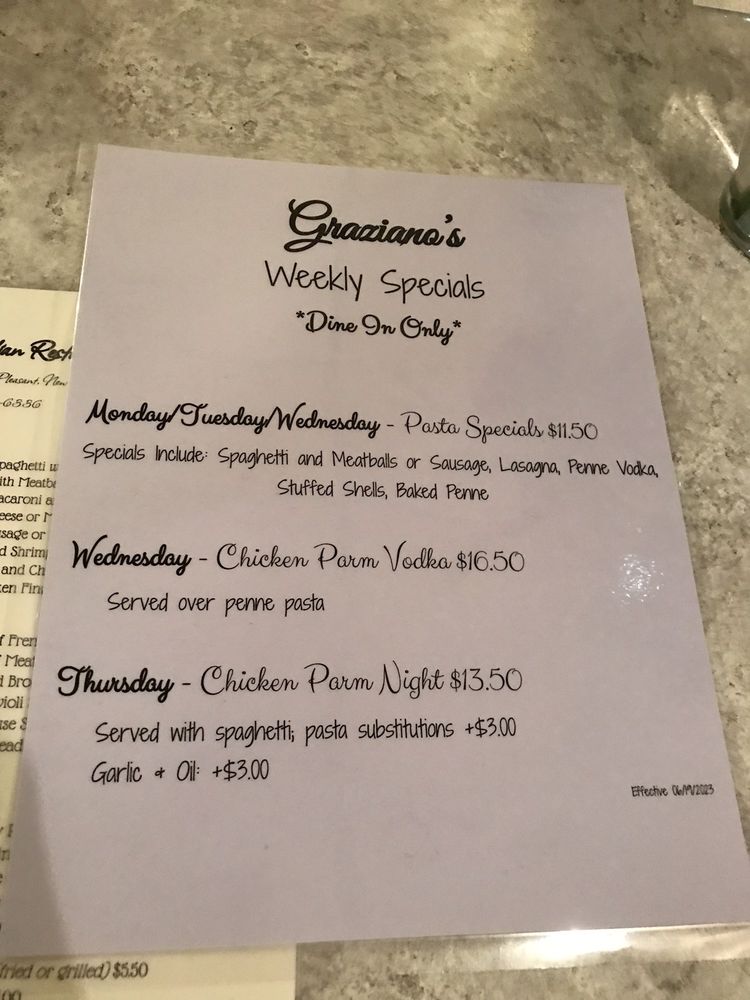 Graziano's
Weekly Specials
*Dine In Only*
Monday/Tuesday/Wednesday - Pasta Specials $11.50
Specials Include: Spaghetti and Meatballs or Sausage, Lasagna, Penne Vodka,
Stuffed Shells, Baked Penne
Wednesday - Chicken Parm Vodka $16.50
Served over penne pasta
Thursday - Chicken Parm Night $13.50
Served with spaghetti; pasta substitutions +$3.00
Garlic & Oil: +$3.00
Effective 06/19/2023
Pleasant, New
-6356
paghetti
ith Meatb
acaroni
eese or
sage or
d Shrim
and Ch
en Fin
f Fren
Meat
d Bro
violi
ead
fried or grilled) $5.50